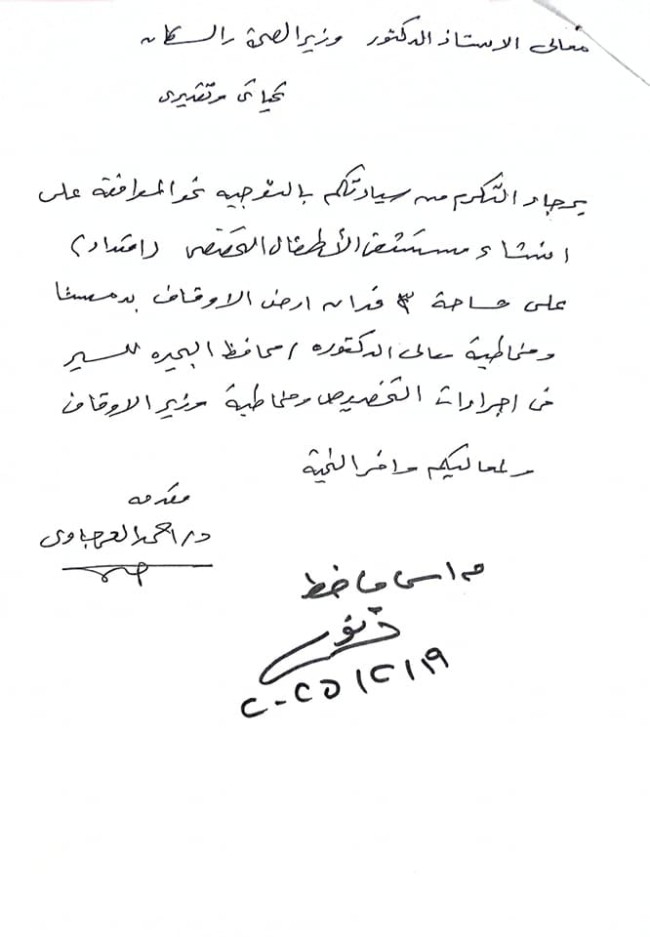 معالى الاستاذ الدكتور وزير الصحة والسكان
تحياتى وتقديرى
برجاء التكرم من سيادتكم بالتوجيه نحو الموافقة على
انشاء مستشفى الأطفال التخصصى (امتداد)
على مساحة ٣ فدان ارض الاوقاف بدمسنا
ومخاطبة معالى الدكتوره / محافظ البحيره للسير
فى اجراءات التخصيص ومخاطبة وزير الاوقاف
ولمعاليكم وافر التحية
مقدمه
د / احمد العرجاوى